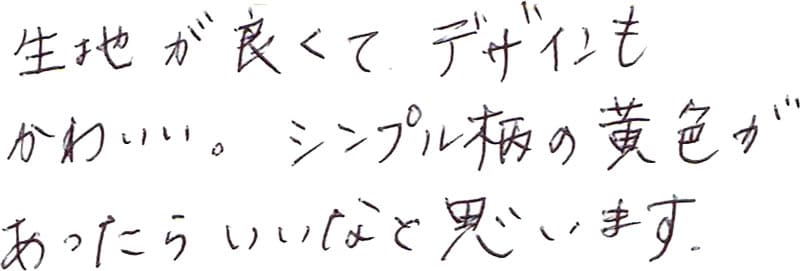 生地が良くて デザインも
かわいい。シンプル柄の黄色が
あったらいいなと思います.